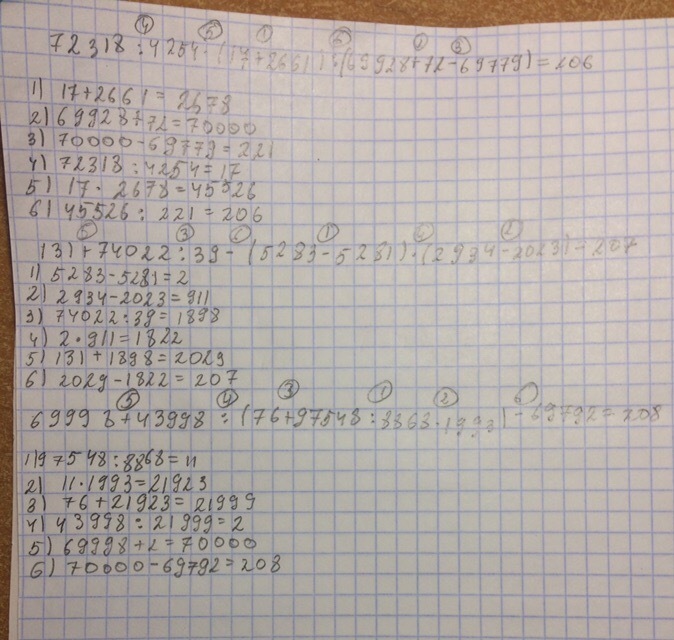 ④ ⑤ ① ⑥ ② ③
72318 : 4254 · (17+2661) : (69928+72-69779) = 206
1) 17+2661 = 2678
2) 69928+72=70000
3) 70000-69779=221
4) 72318 : 4254=17
5) 17 · 2678=45526
6) 45526 : 221 = 206
⑤ ③ ⑥ ① ④ ②
131+74022 : 39 - (5283-5281) · (2934-2023) = 207
1) 5283-5281=2
2) 2934-2023=911
3) 74022:39=1898
4) 2·911=1822
5) 131+1898=2029
6) 2029-1822=207
⑤ ④ ③ ① ② ⑥
69998+43998 : (76+97548 : 8868·1993) - 69792=208
1) 97548:8868=11
2) 11·1993=21923
3) 76+21923=21999
4) 43998 : 21999=2
5) 69998+2=70000
6) 70000-69792=208